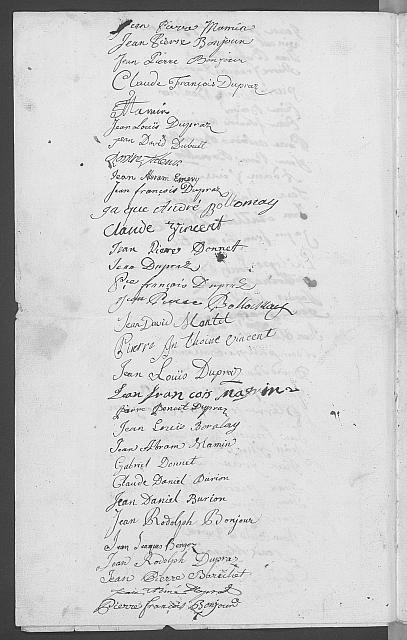 Jean Pierre Mamin
Jean Pierre Bonjour
Jean Pierre Bonjour
Claude François Dupraz
Mamin
Jean Louïs Dupraz
Jean David Dubuit
Jean Abram Emery
Jean françois Dupraz
ja que André Bolomay
Claude Vincent
Jean Pierre Donnet
Jean Dupraz
françois Dupraz
Jean Pierre Bollomay
Jean David Montet
Pierre An thoine vincent
Jean Louïs Dupraz
Jean fran cois mamin
Pierre Benoit Dupraz
Jean Louis Boralay
Jean Abram Mamin
Gabriel Donnet
Claude Daniel Burion
Jean Daniel Burion
Jean Rodolph Bonjour
Jean Jaques Berger
Jean Rodolph Dupraz
Jean Pierre
Jean
Pierre françois Bonjour